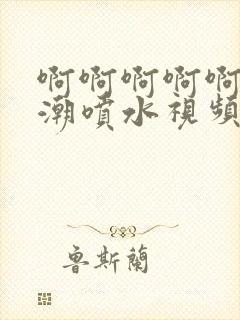 啊啊啊啊啊
潮噴水視頻
魯斯蘭